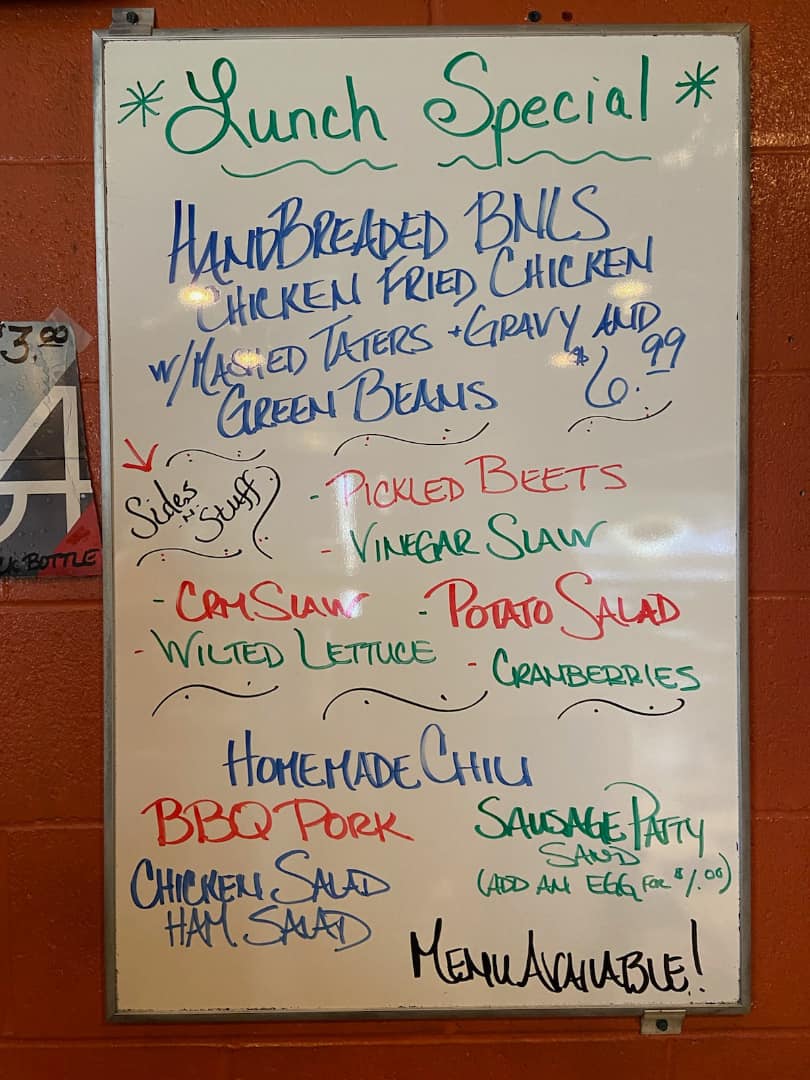 $3.00
A
BOTTLE
* Lunch Special *
HANDBREADED BNLS
CHICKEN FRIED CHICKEN
W/MASHED TATERS + GRAVY AND
GREEN BEANS $6.99
Sides
-N-
Stuff
- PICKLED BEETS
- VINEGAR SLAW
- CRM SLAW - POTATO SALAD
- WILTED LETTUCE - CRANBERRIES
HOMEMADE CHILI
BBQ PORK
SAUSAGE PATTY
SAND
(ADD AN EGG FOR $1.00)
CHICKEN SALAD
HAM SALAD
MENU AVAILABLE!